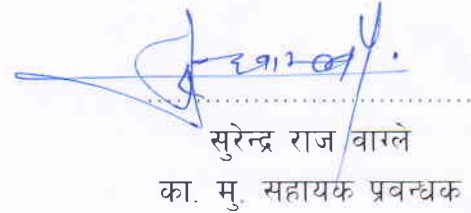 सुरेन्द्र राज वाग्ले
का. मु. सहायक प्रवन्धक